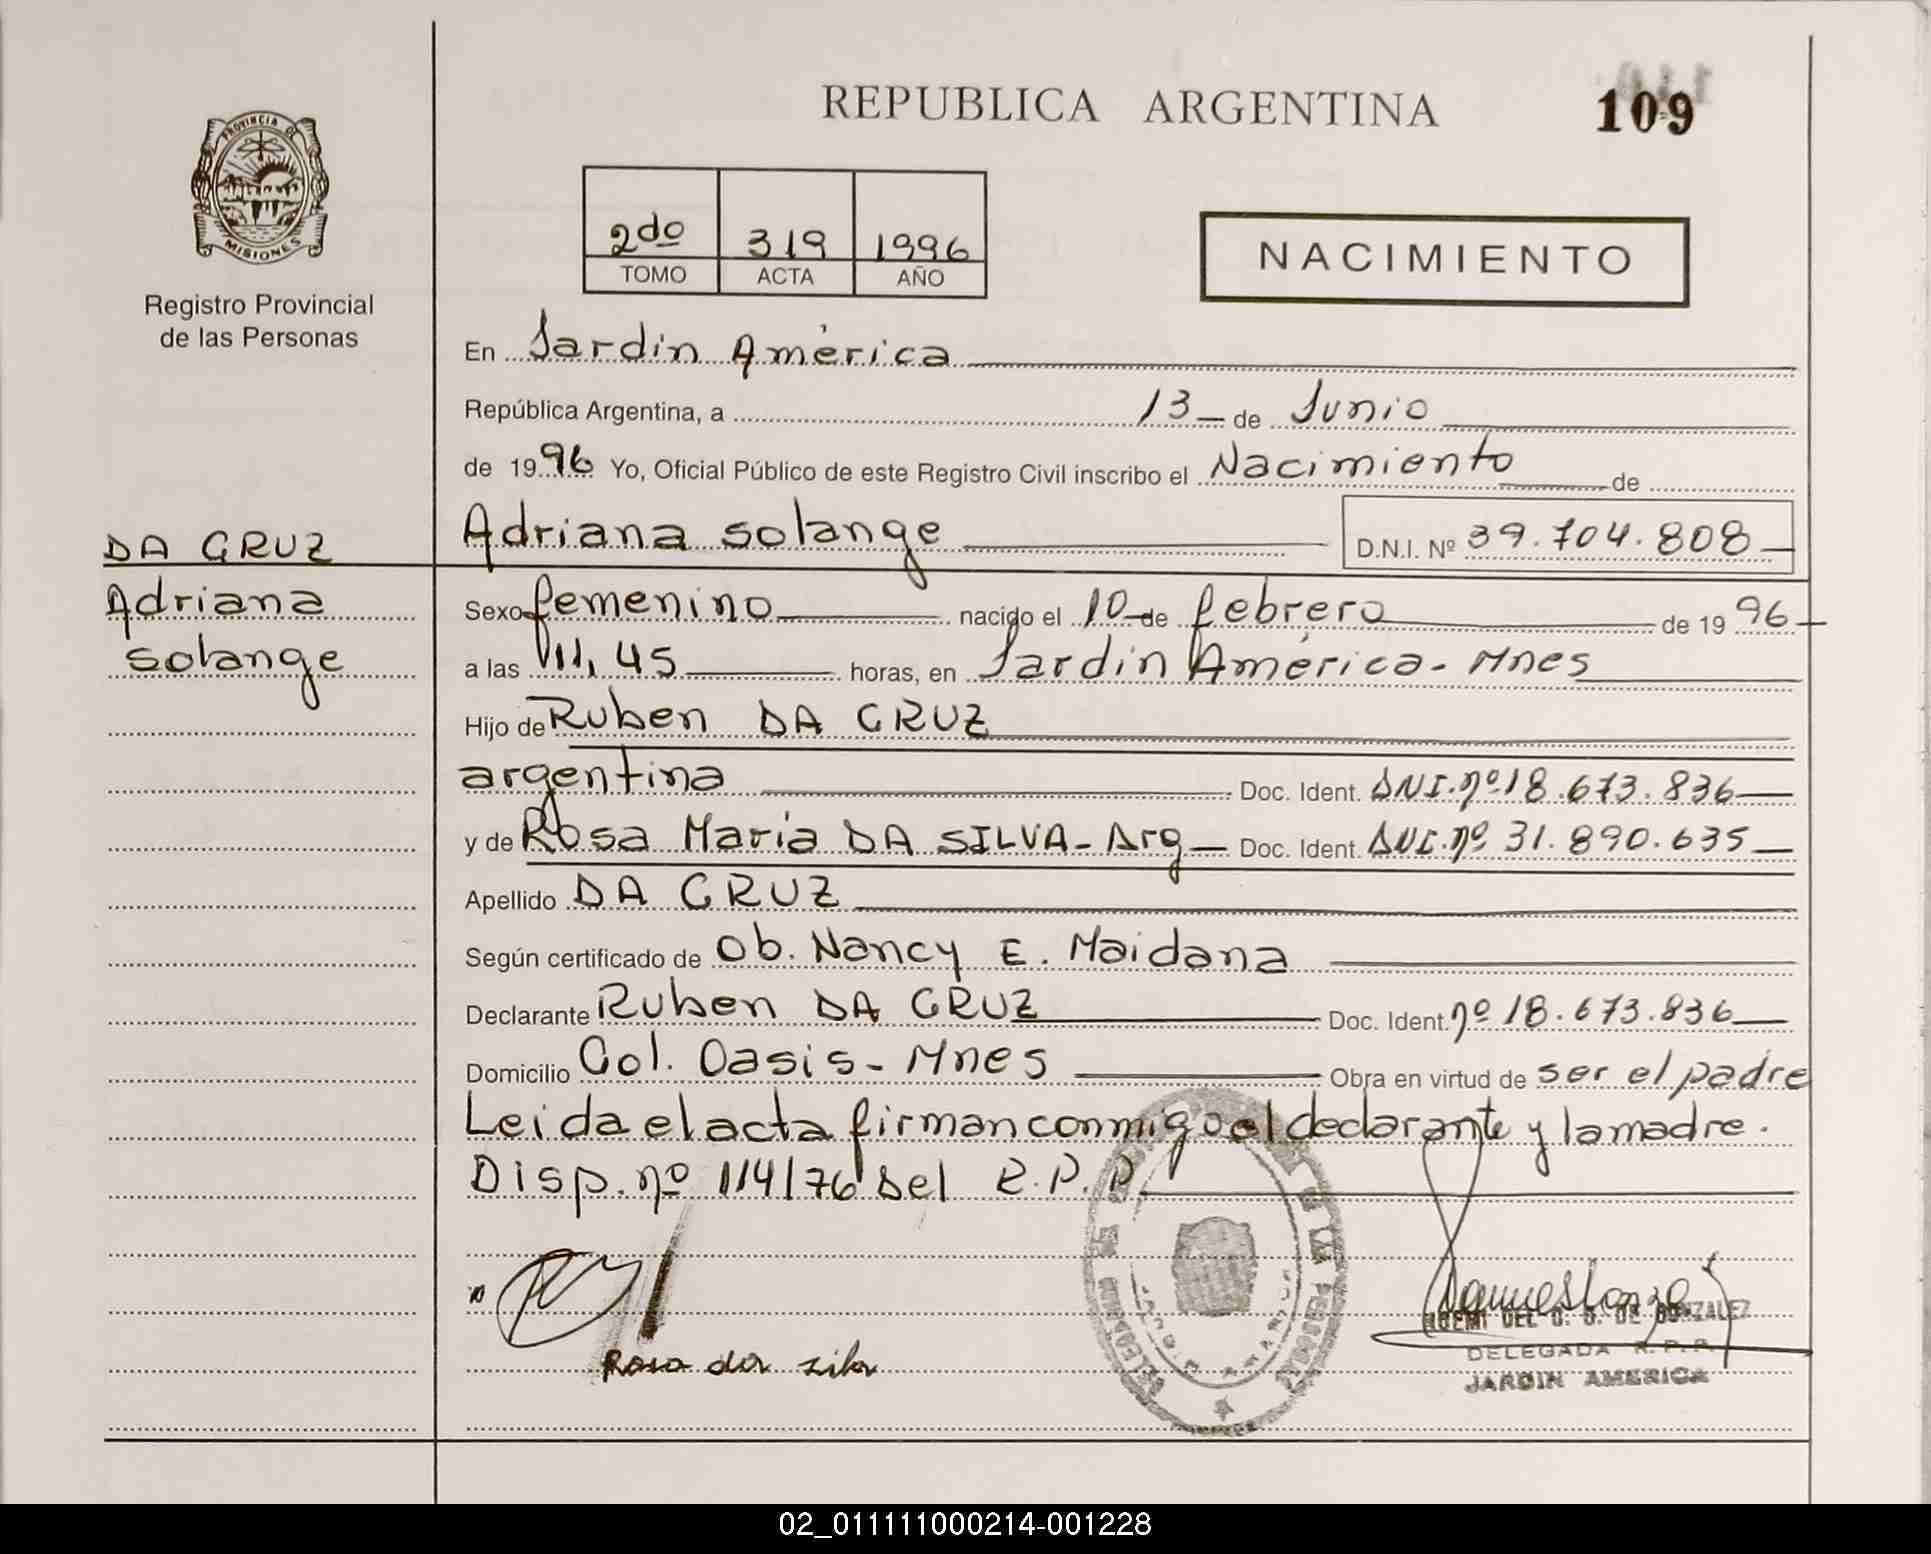 REPUBLICA ARGENTINA
109
PROVINCIA DE
MISIONES
Registro Provincial
de las Personas
2do 319 1996
TOMO ACTA AÑO
NACIMIENTO
En Jardín América
República Argentina, a 13 de Junio
de 1996 Yo, Oficial Público de este Registro Civil inscribo el Nacimiento de
DA CRUZ
Adriana
solange
Adriana solange D.N.I. Nº 39.704.808
Sexo femenino nacido el 10 de febrero de 1996
a las 11,45 horas, en Jardín América - Mnes
Hijo de Ruben DA CRUZ
argentina Doc. Ident. DNI. nº 18.673.836
y de Rosa Maria DA SILVA - Arg Doc. Ident. DNI. nº 31.890.635
Apellido DA CRUZ
Según certificado de Ob. Nancy E. Maidana
Declarante Ruben DA CRUZ Doc. Ident. nº 18.673.836
Domicilio Col. Oasis - Mnes Obra en virtud de ser el padre
Leida el acta firman conmigo el declarante y la madre.
Disp. nº 114/76 del R.P.P
Rosa da silva
DEL DE GONZALEZ
DELEGADA R.P.P.
JARDIN AMERICA
02_011111000214-001228